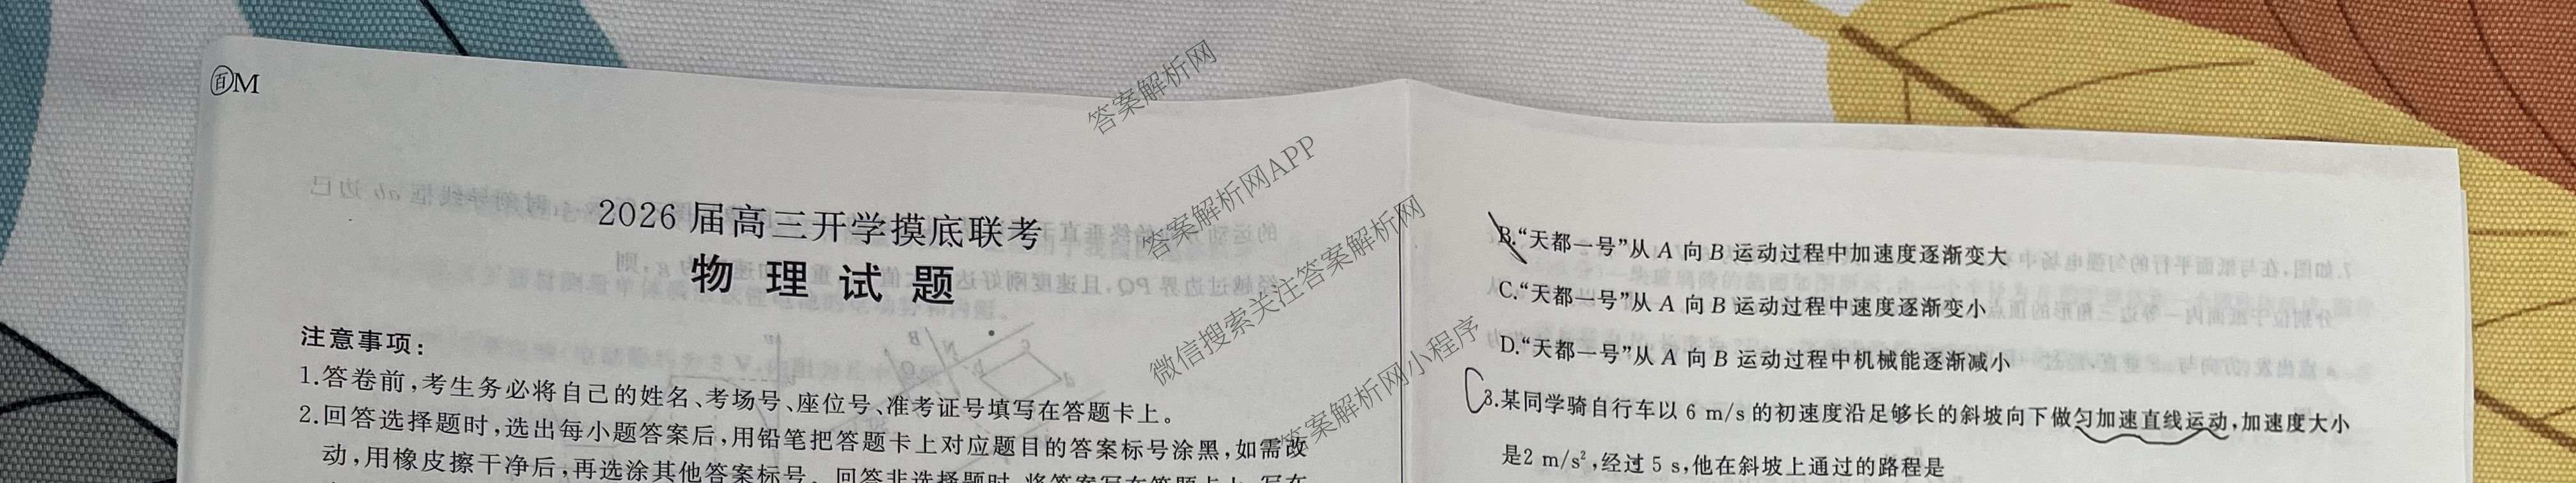 百M
2026 届高三开学摸底联考
物 理 试 题
注意事项：
1.答卷前,考生务必将自己的姓名、考场号、座位号、准考证号填写在答题卡上。
2.回答选择题时,选出每小题答案后,用铅笔把答题卡上对应题目的答案标号涂黑,如需改
动,用橡皮擦干净后,再选涂其他答案标号。回答非选择题时,将答案写在答题卡上,写在
B.“天都一号”从 A 向 B 运动过程中加速度逐渐变大
C.“天都一号”从 A 向 B 运动过程中速度逐渐变小
D.“天都一号”从 A 向 B 运动过程中机械能逐渐减小
3.某同学骑自行车以 6 m/s 的初速度沿足够长的斜坡向下做匀加速直线运动,加速度大小
是2 m/s²,经过 5 s,他在斜坡上通过的路程是
答案解析网
答案解析网APP
微信搜索关注答案解析网
答案解析网小程序